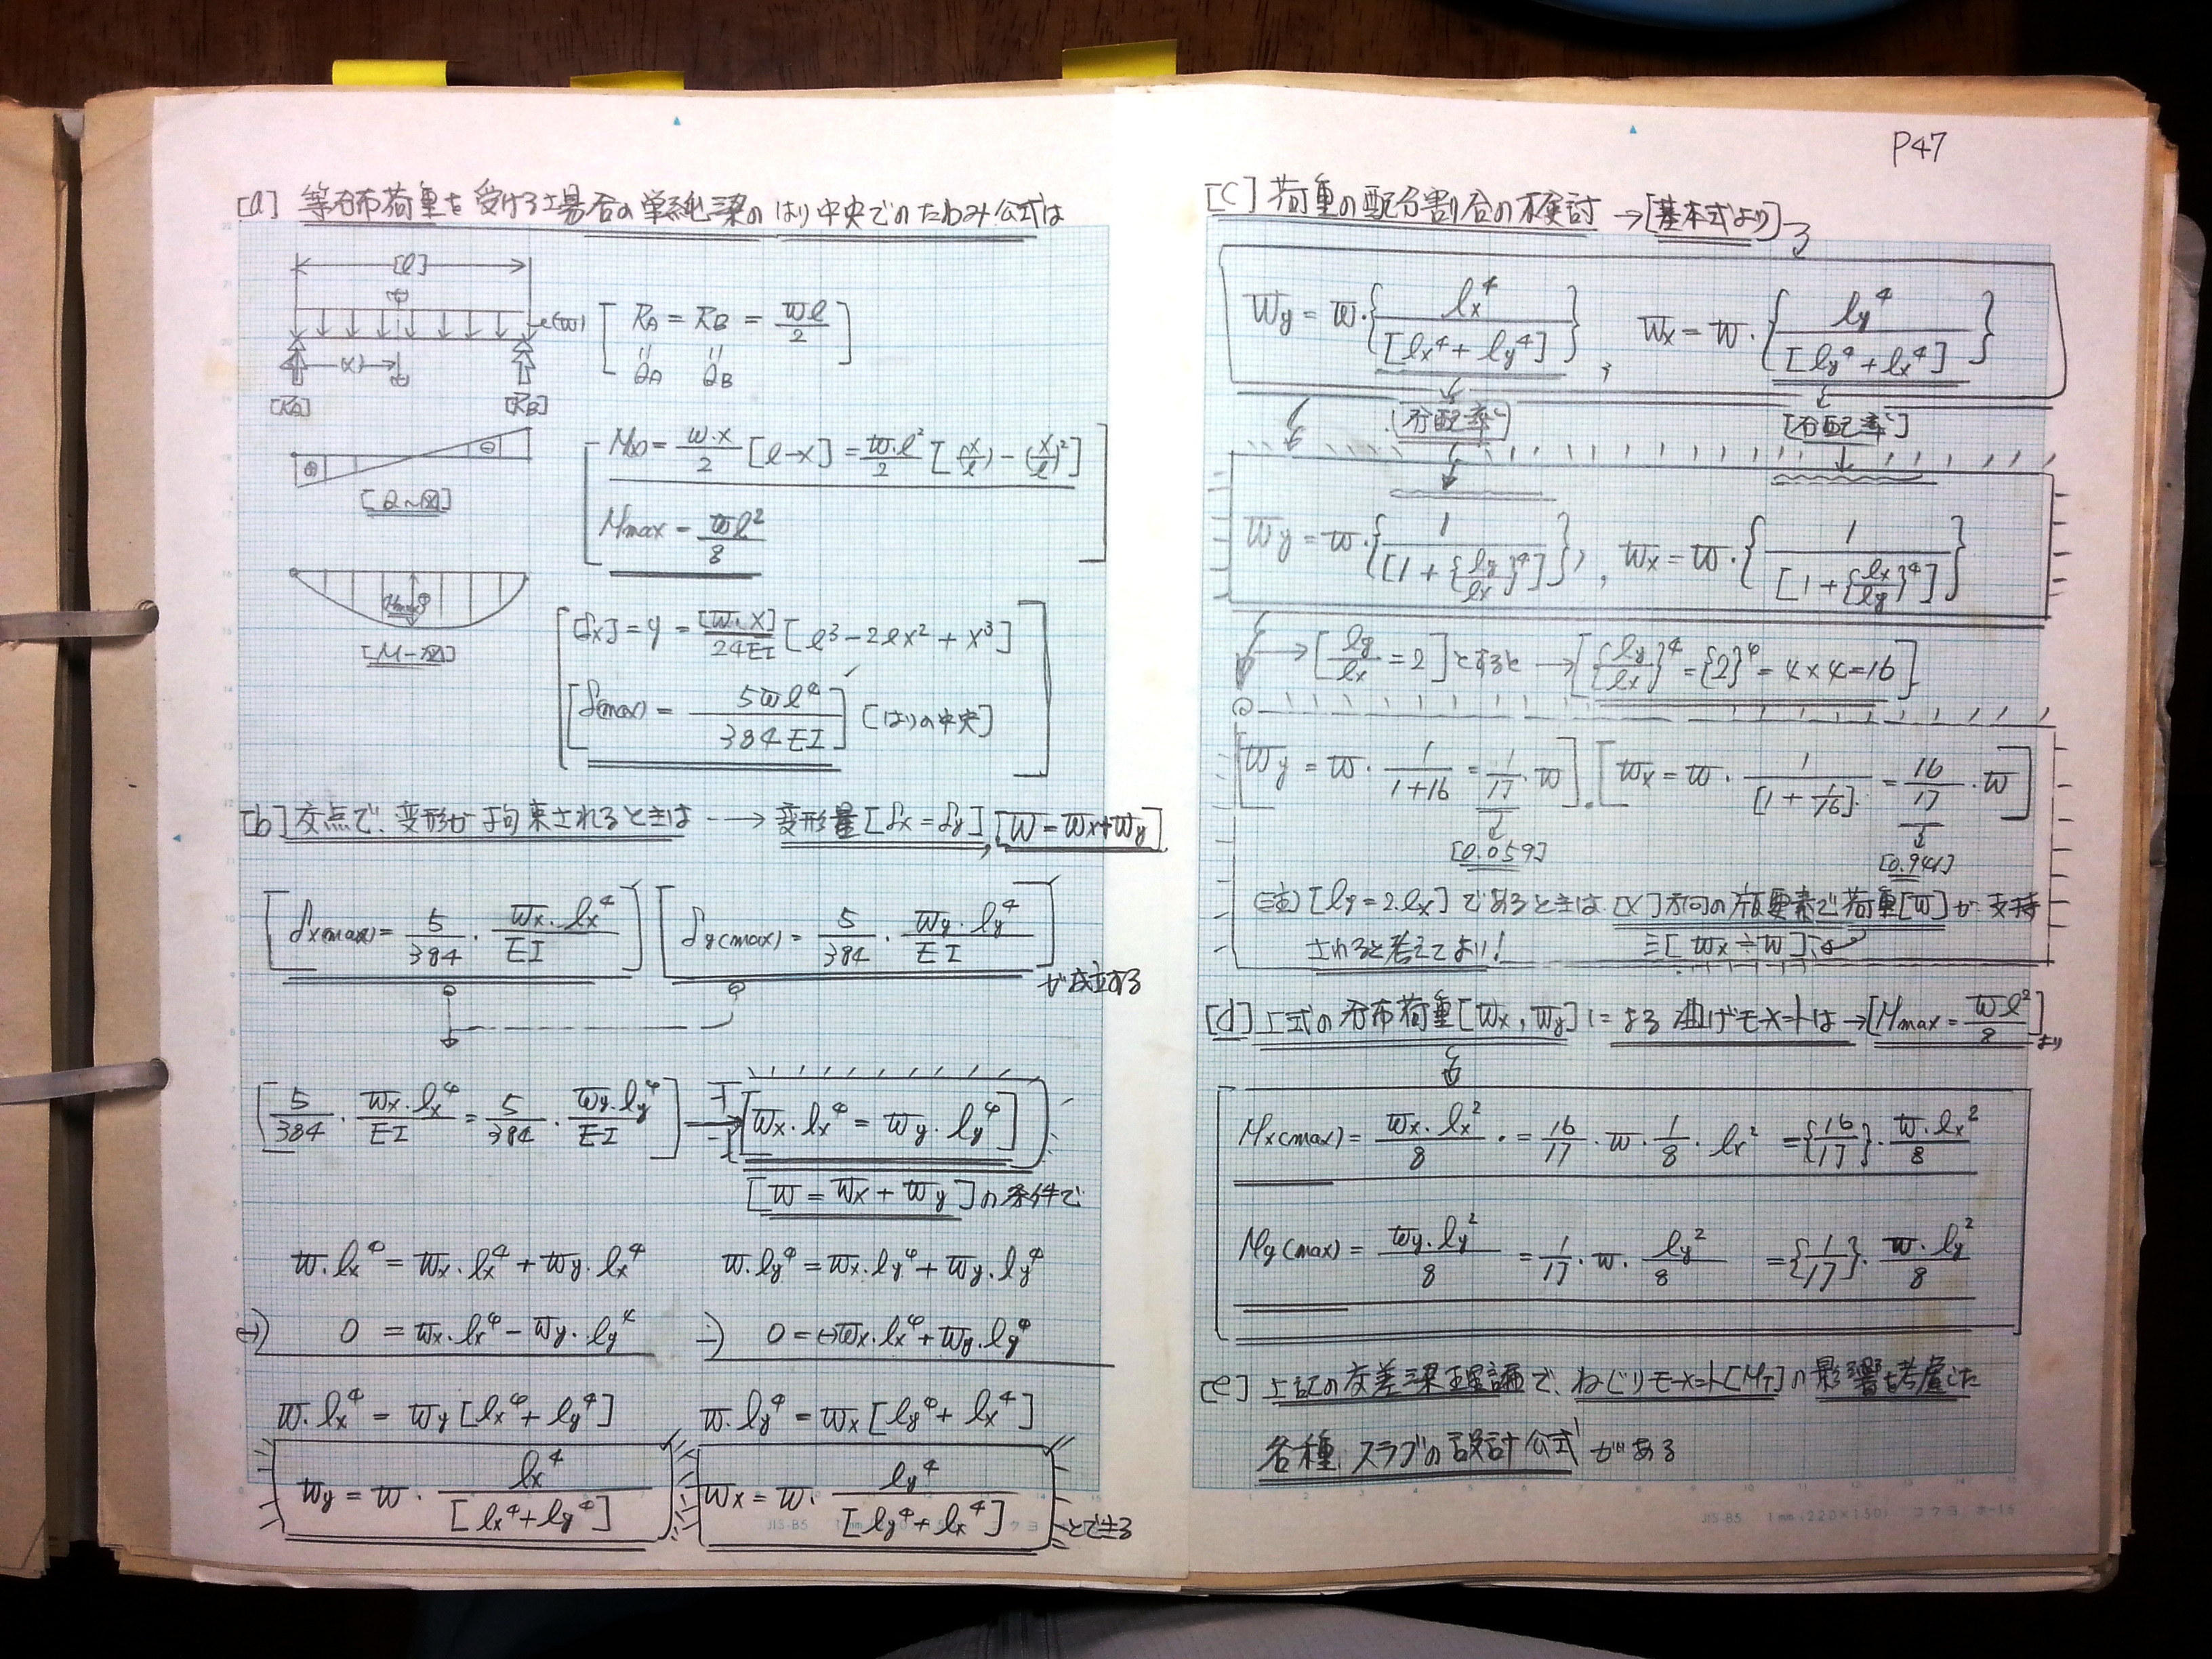 [a] 等分布荷重を受ける場合の単純梁のはり中央でのたわみ公式は
[l]
(w)
(x)
[RA] [RB]
[RA = RB = wl/2]
QA QB
[Q~図]
M(x) = w·x/2 [l-x] = w·l²/2 [(x/l) - (x/l)²]
Mmax = wl²/8
Mmax
[M-図]
[δx] = y = [w·x]/24EI [l³ - 2lx² + x³]
[δ(max) = 5wl⁴/384EI] [はりの中央]
[b] 交点で、変形が拘束されるときは → 変形量 [δx = δy], [W = Wx+Wy]
[δx(max) = 5/384 · wx·lx⁴/EI] [δy(max) = 5/384 · wy·ly⁴/EI]
が成立する
[5/384 · wx·lx⁴/EI = 5/384 · wy·ly⁴/EI] → [wx·lx⁴ = wy·ly⁴]
[w = wx + wy] の条件で
w·lx⁴ = wx·lx⁴ + wy·lx⁴ w·ly⁴ = wx·ly⁴ + wy·ly⁴
-) 0 = wx·lx⁴ - wy·ly⁴ -) 0 = (-)wx·lx⁴ + wy·ly⁴
w·lx⁴ = wy [lx⁴ + ly⁴] w·ly⁴ = wx [ly⁴ + lx⁴]
wy = w · lx⁴/[lx⁴+ly⁴] wx = w · ly⁴/[ly⁴+lx⁴] とできる
JIS-B5 1mm
P47
[c] 荷重の配分割合の検討 → [基本式より]
Wy = w·{lx⁴/[lx⁴+ly⁴]}, wx = w·{ly⁴/[ly⁴+lx⁴]}
[分配率] [分配率]
wy = w·{1/[1+{ly/lx}⁴]}, wx = w·{1/[1+{lx/ly}⁴]}
→ [ly/lx = 2] とすると → [{ly/lx}⁴ = {2}⁴ = 4×4 = 16]
[wy = w · 1/1+16 = 1/17 · w], [wx = w · 1/[1+1/16] = 16/17 · w]
[0.059] [0.941]
(注) [ly = 2·lx] であるときは [X] 方向の版要素で荷重[w]が支持
されると考えてよい! ≡ [wx ≑ w]
[d] 上式の分布荷重 [wx, wy] による曲げモーメントは → [Mmax = wl²/8] より
Mx(max) = wx·lx²/8 · = 16/17 · w · 1/8 · lx² = {16/17} · w·lx²/8
My(max) = wy·ly²/8 = 1/17 · w · ly²/8 = {1/17} · w·ly²/8
[e] 上記の交差梁理論で、ねじりモーメント[MT]の影響を考慮した
各種、スラブの設計公式がある
JIS-B5 1mm (220×150) コクヨ ホ-15